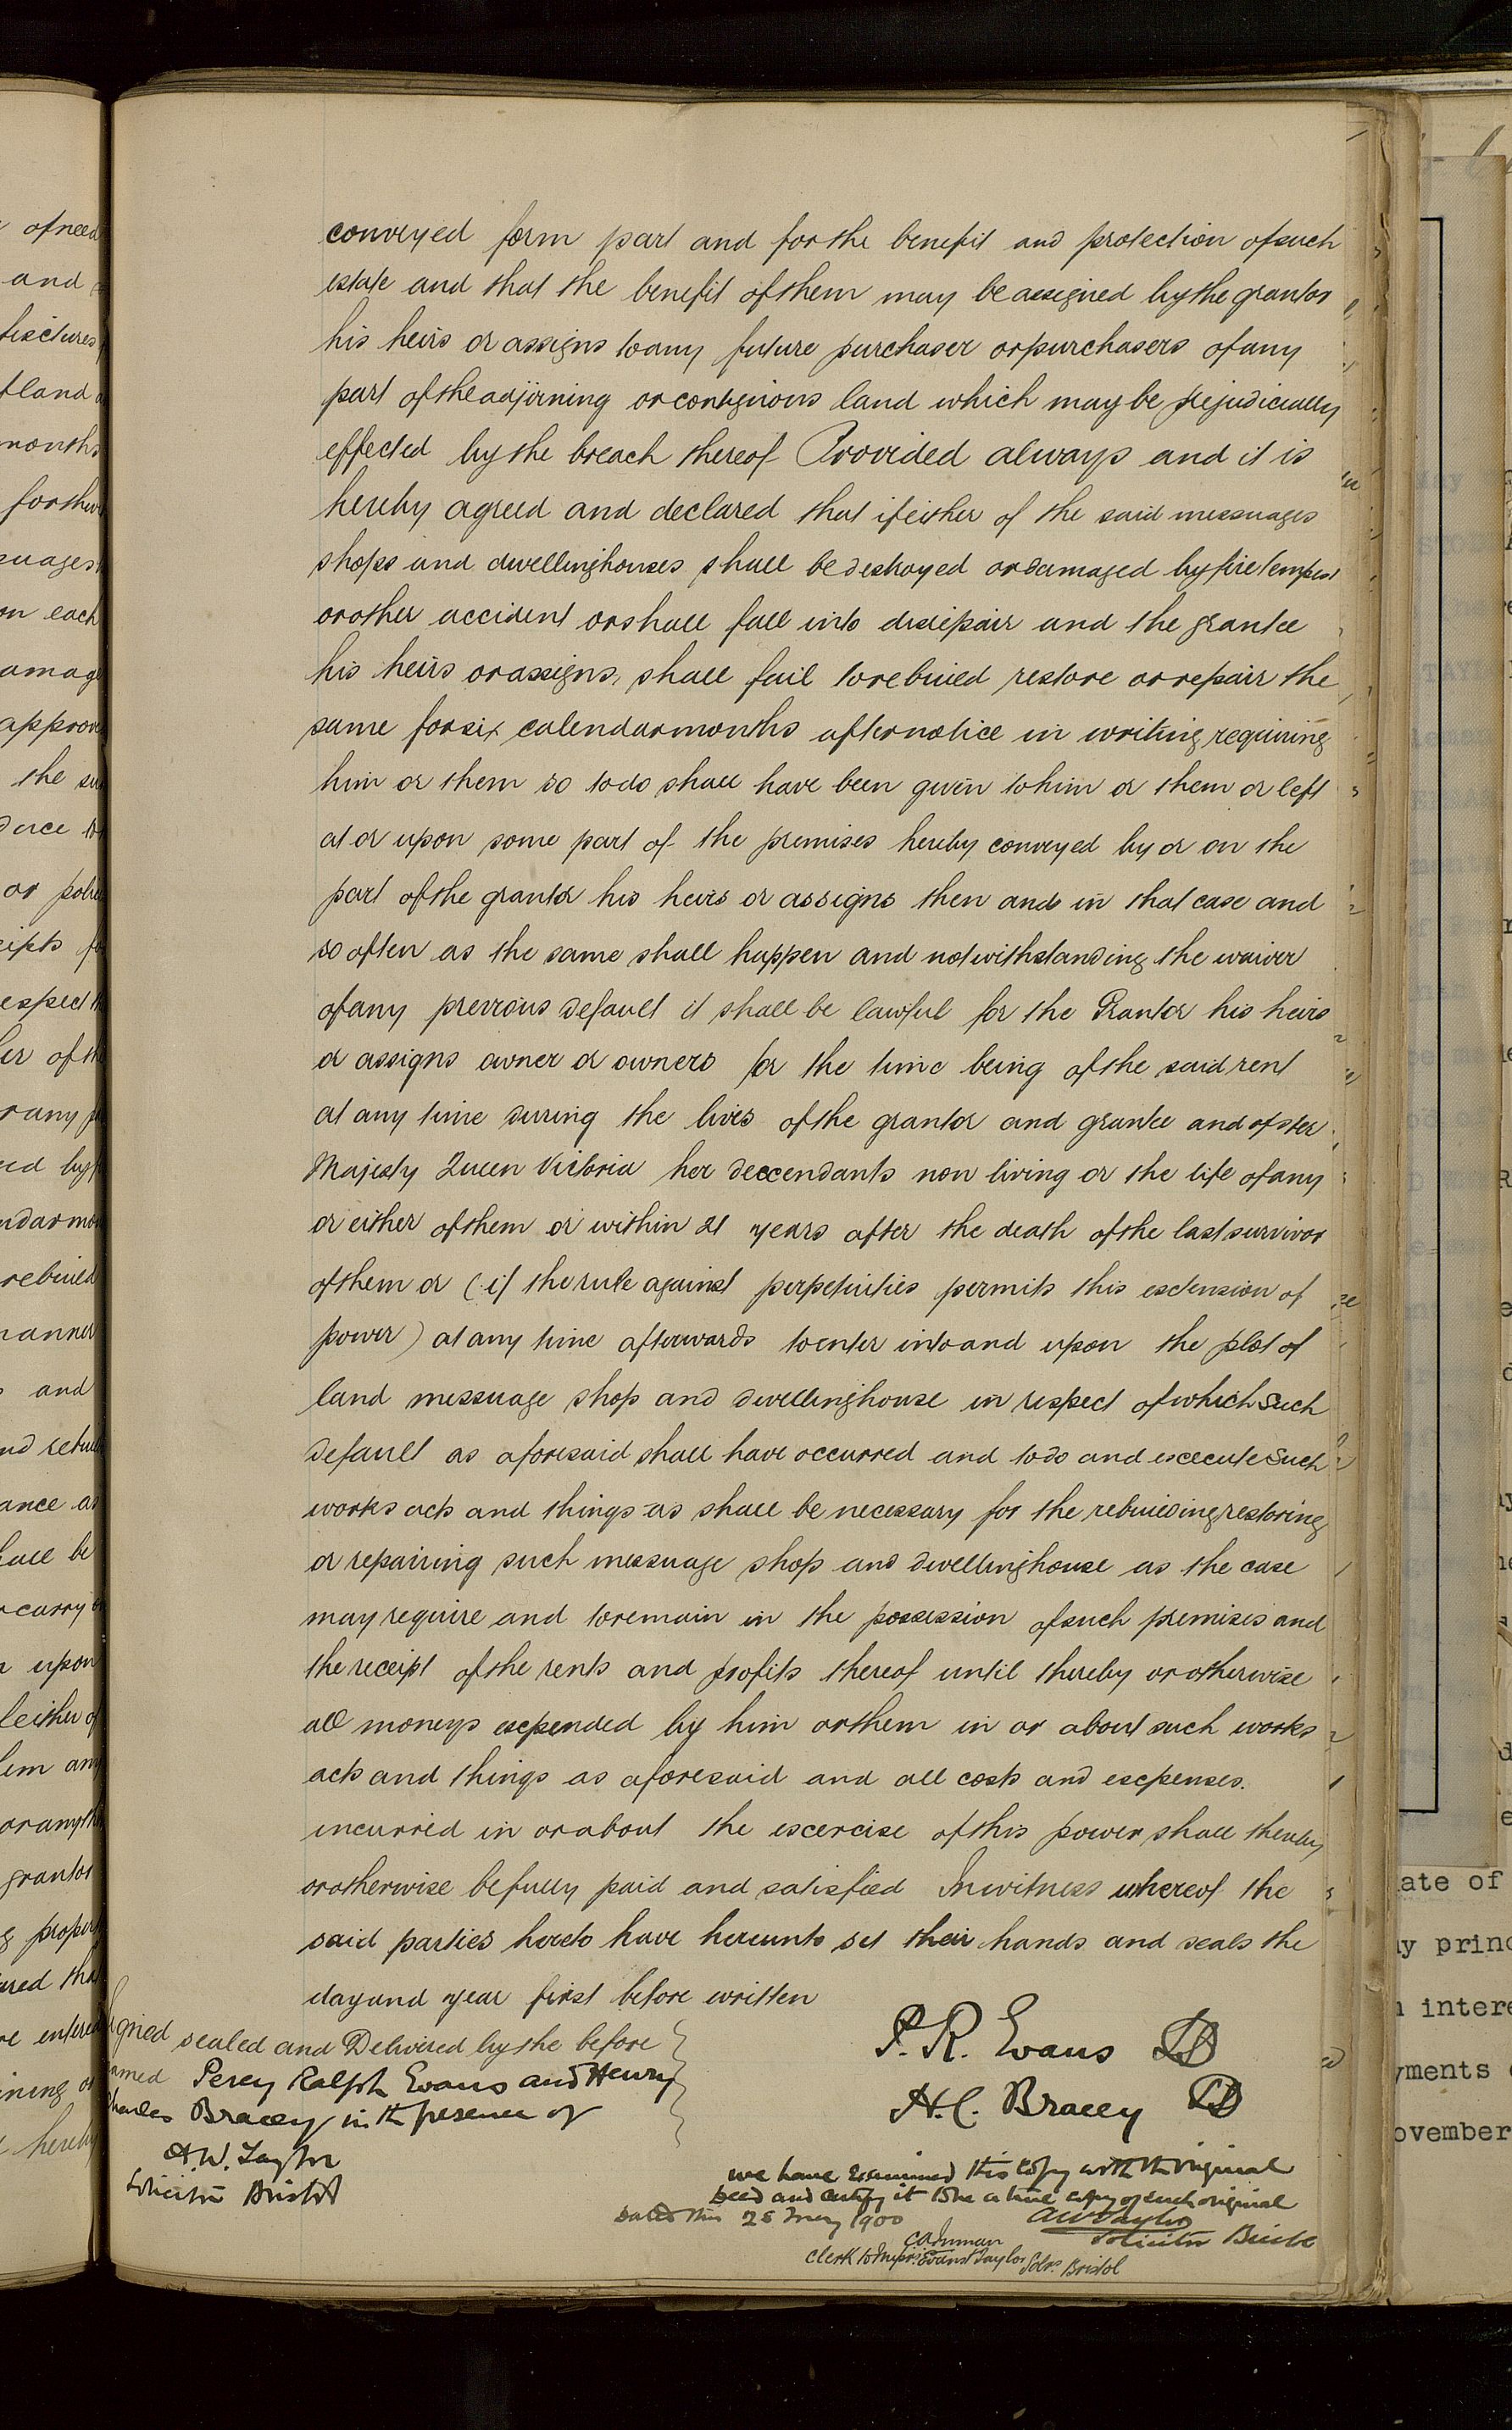 conveyed form part and for the benefit and protection of such
estate and that the benefit of them may be assigned by the grantor
his heirs or assigns to any future purchaser or purchasers of any
part of the adjoining or contiguous land which may be prejudicially
effected by the breach thereof Provided always and it is
hereby agreed and declared that if either of the said messuages
shops and dwellinghouses shall be destroyed or damaged by fire tempest
or other accident or shall fall into disrepair and the grantee
his heirs or assigns, shall fail to rebuild restore or repair the
same for six calendar months after notice in writing requiring
him or them so to do shall have been given to him or them or left
at or upon some part of the premises hereby conveyed by or on the
part of the grantor his heirs or assigns then and in that case and
so often as the same shall happen and notwithstanding the waiver
of any previous default it shall be lawful for the Grantor his heirs
or assigns owner or owners for the time being of the said rent
at any time during the lives of the grantor and grantee and of Her
Majesty Queen Victoria her descendants now living or the life of any
or either of them or within 21 years after the death of the last survivor
of them or (if the rule against perpetuities permits this extension of
power) at any time afterwards to enter into and upon the plot of
land messuage shop and dwellinghouse in respect of which such
default as aforesaid shall have occurred and to do and execute such
works acts and things as shall be necessary for the rebuilding restoring
or repairing such messuage shop and dwellinghouse as the case
may require and to remain in the possession of such premises and
the receipt of the rents and profits thereof until thereby or otherwise
all moneys expended by him or them in or about such works
acts and things as aforesaid and all costs and expenses.
incurred in or about the exercise of this power shall thereby
or otherwise be fully paid and satisfied In witness whereof the
said parties hereto have hereunto set their hands and seals the
day and year first before written
Signed sealed and Delivered by the before
named Percy Ralph Evans and Henry
Charles Bracey in the presence of
A. W. Taylor
Solicitor Bristol
P. R. Evans LS
H. C. Bracey LS
we have examined this copy with the original
Deed and certify it to be a true copy of such original
Dated this 25 May 1900
AW Taylor
Solicitor
CA Inman
Clerk to Evans & Taylor Solrs. Bristol